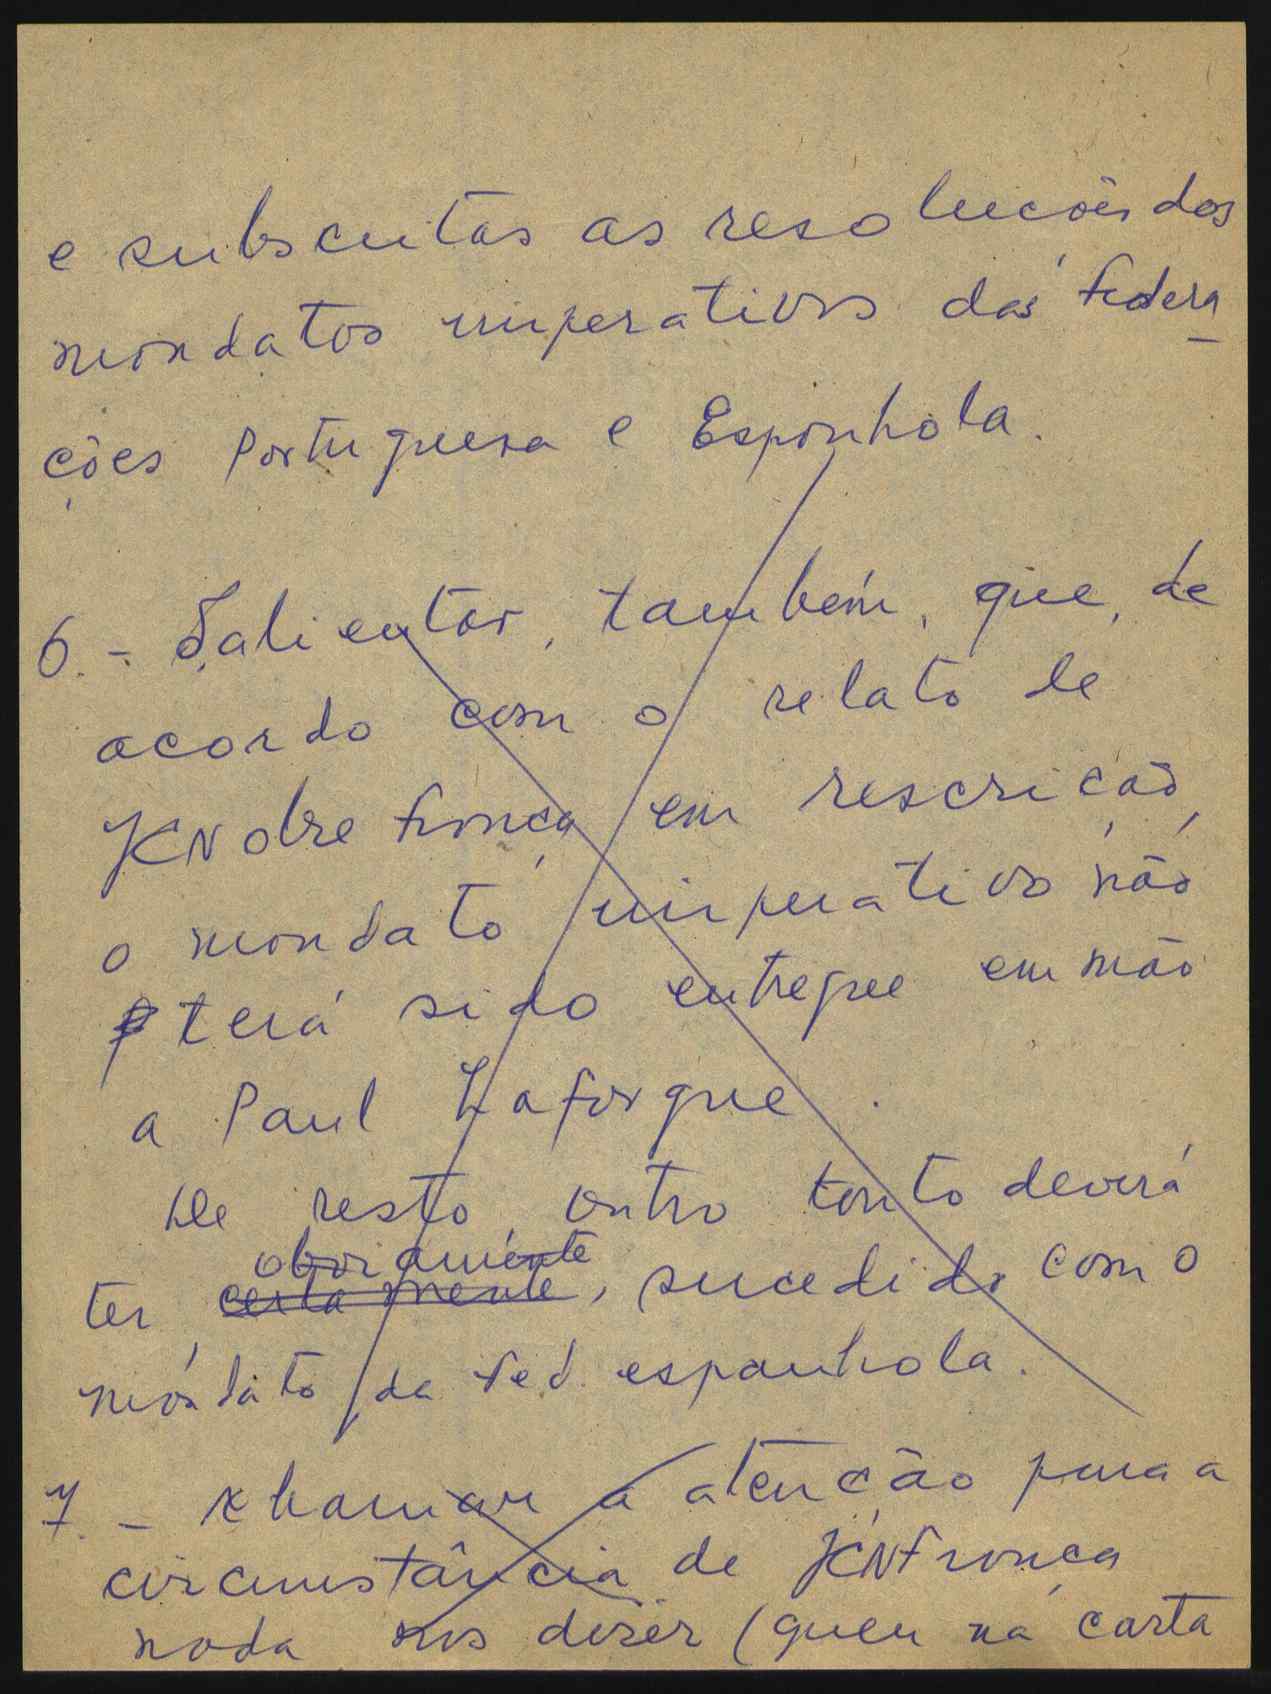 e subscritas as resoluções dos
mandatos imperativos das Federa-
ções Portuguesa e Espanhola.
6. - Salientar, também, que, de
acordo com o relato de
JCNobre França em rescrição,
o mandato imperativo não
terá sido entregue em mão
a Paul Lafargue.
De resto, outro tanto deverá
obviamente
ter, certamente, sucedido com o
mandato da Fed. espanhola.
7. - Chamar a atenção para a
circunstância de JCNFrança
nada nos dizer (quer na carta